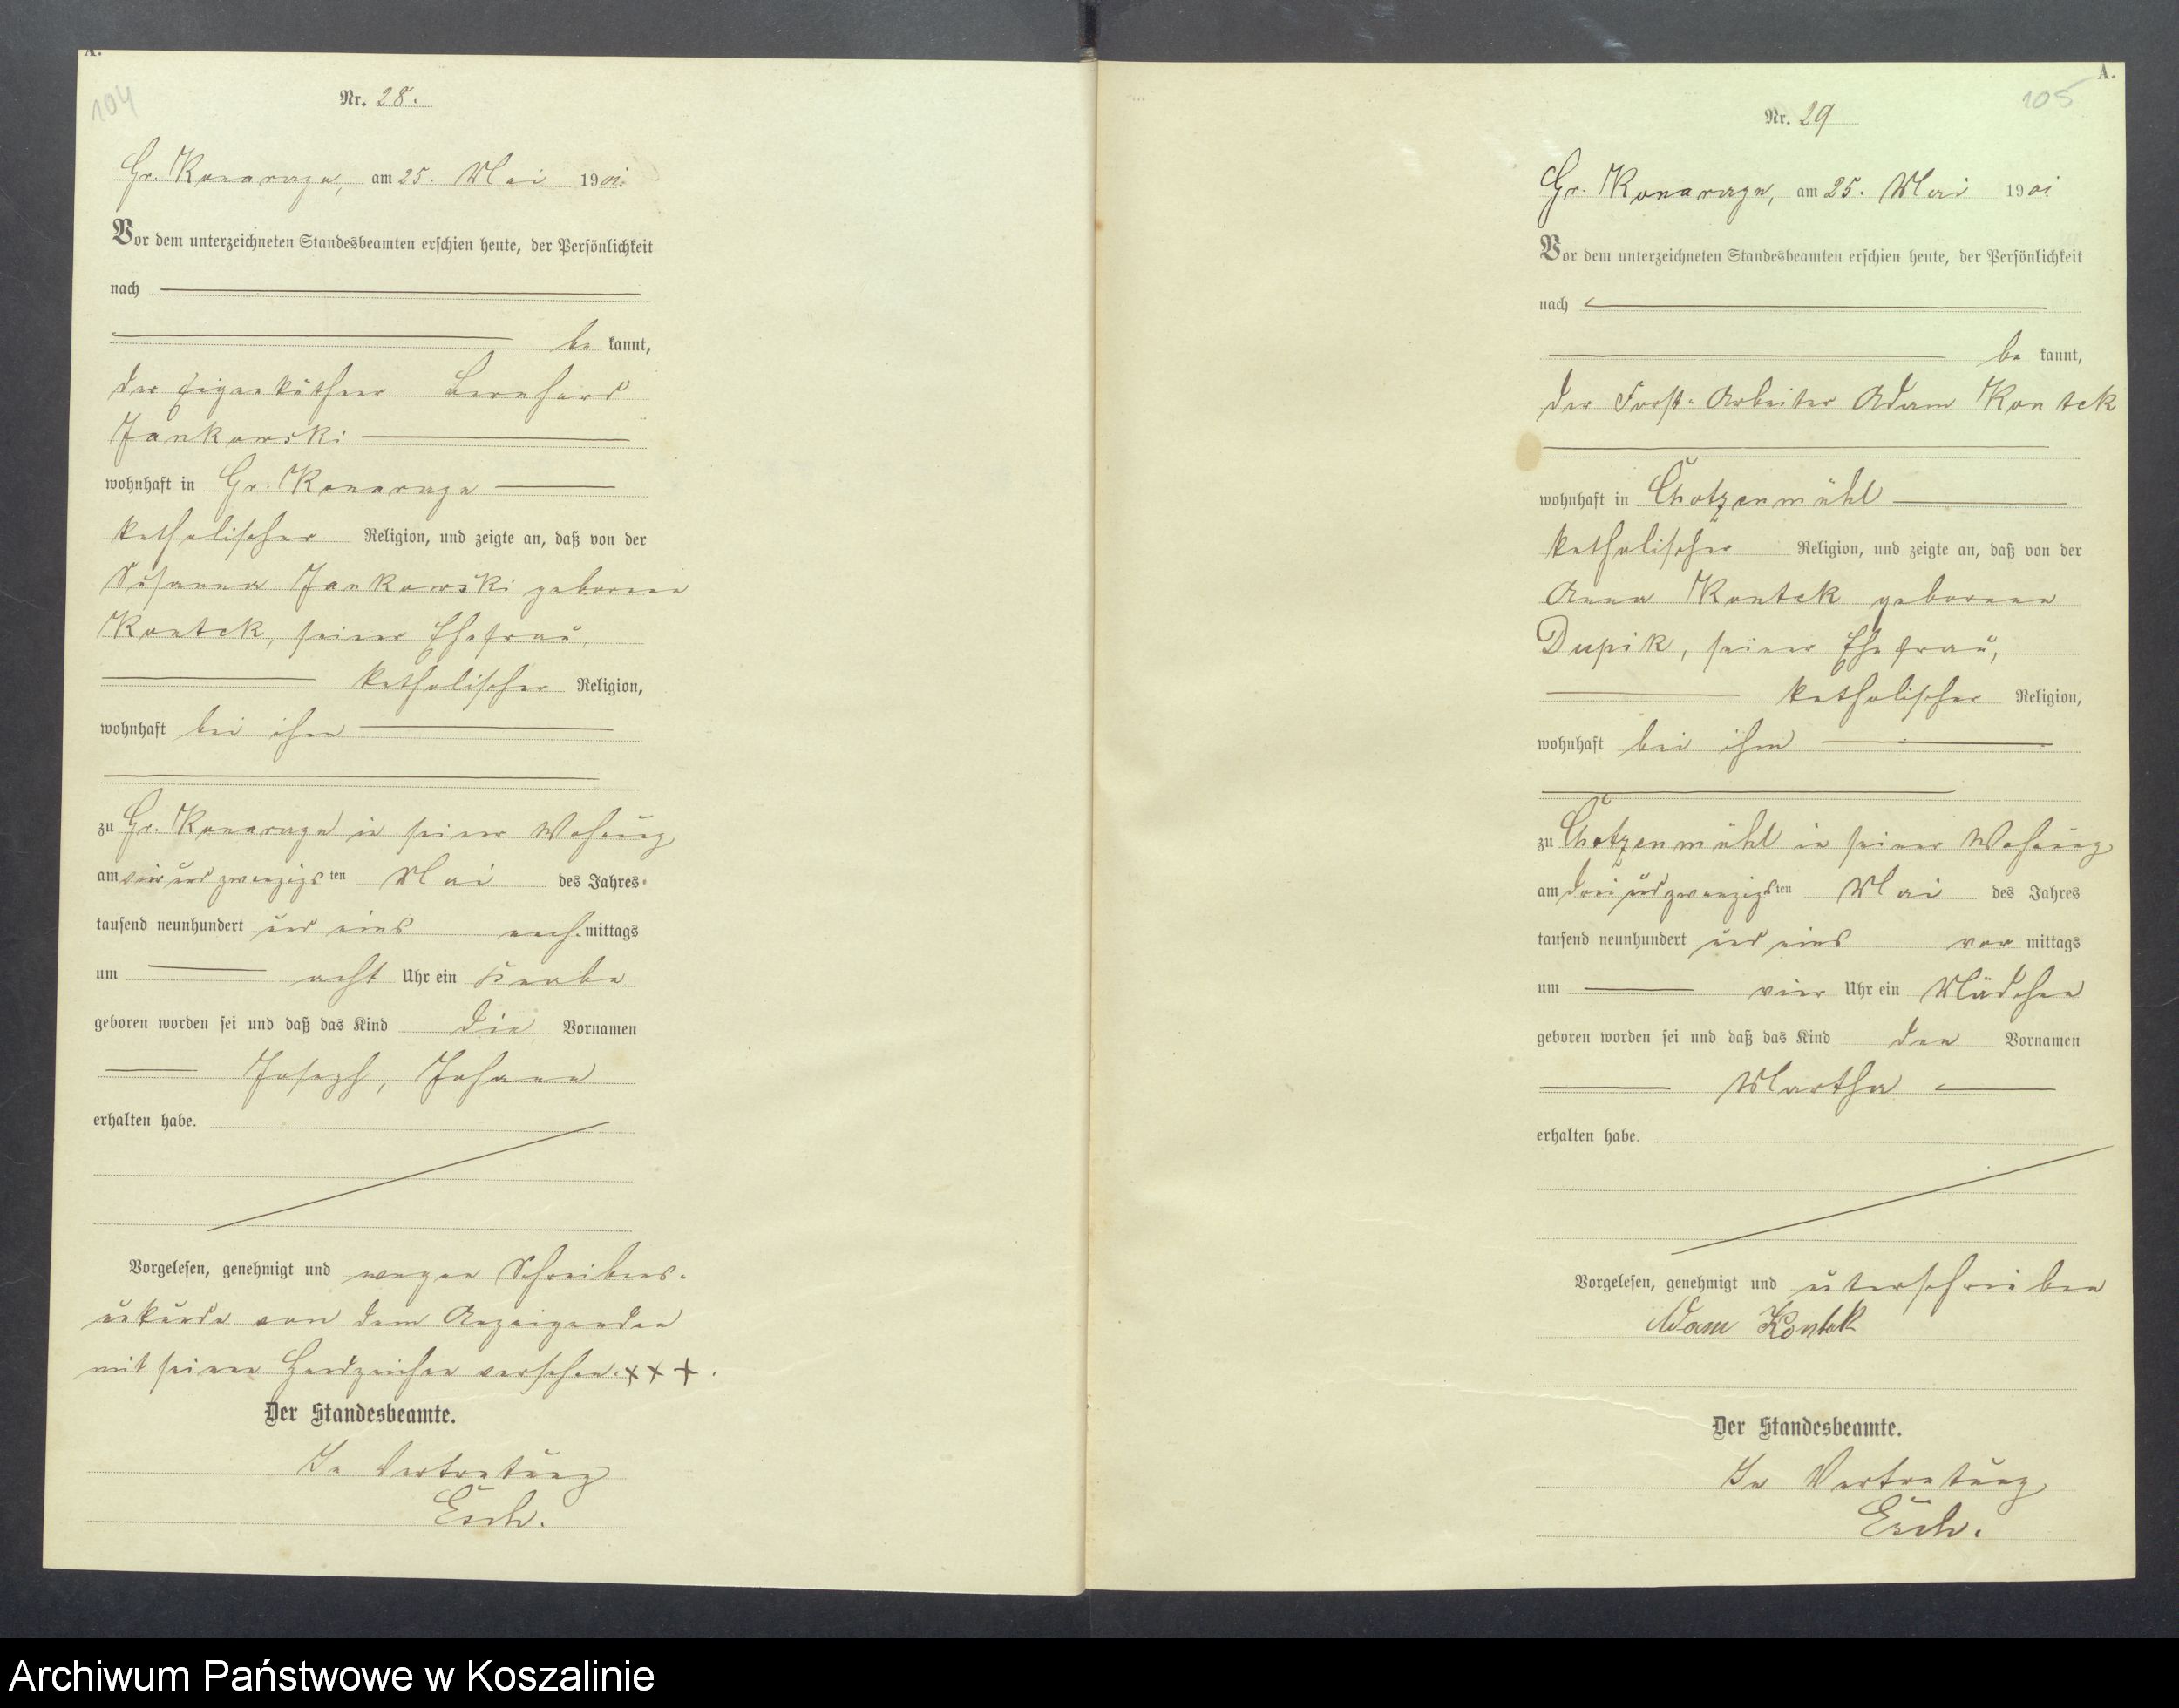 A.
104
Nr. 28.
Gr. Konarczyn, am 25. Mai 1901.
Vor dem unterzeichneten Standesbeamten erschien heute, der Persönlichkeit
nach
be kannt,
der Eigenkäthner Bernhard
Jankowski
wohnhaft in Gr. Konarczyn
katholischer Religion, und zeigte an, daß von der
Susanna Jankowski geborene
Kontek, seiner Ehefrau,
katholischer Religion,
wohnhaft bei ihm
zu Gr. Konarczyn in seiner Wohnung
am vier und zwanzigs ten Mai des Jahres
tausend neunhundert und eins nach mittags
um acht Uhr ein Knabe
geboren worden sei und daß das Kind die Vornamen
Joseph, Johann
erhalten habe.
Vorgelesen, genehmigt und wegen Schreibens-
unkunde von dem Anzeigenden
mit seinen Handzeichen versehen. +++.
Der Standesbeamte.
In Vertretung
Esch.
A.
105
Nr. 29
Gr. Konarczyn, am 25. Mai 1901
Vor dem unterzeichneten Standesbeamten erschien heute, der Persönlichkeit
nach
be kannt,
der Forst-Arbeiter Adam Kontek
wohnhaft in Chotzenmühl
katholischer Religion, und zeigte an, daß von der
Anna Kontek geborene
Dupik, seiner Ehefrau,
katholischer Religion,
wohnhaft bei ihm
zu Chotzenmühl in seiner Wohnung
am drei und zwanzigs ten Mai des Jahres
tausend neunhundert und eins vor mittags
um vier Uhr ein Mädchen
geboren worden sei und daß das Kind den Vornamen
Martha
erhalten habe.
Vorgelesen, genehmigt und unterschrieben
Adam Kontek
Der Standesbeamte.
In Vertretung
Esch.
Archiwum Państwowe w Koszalinie